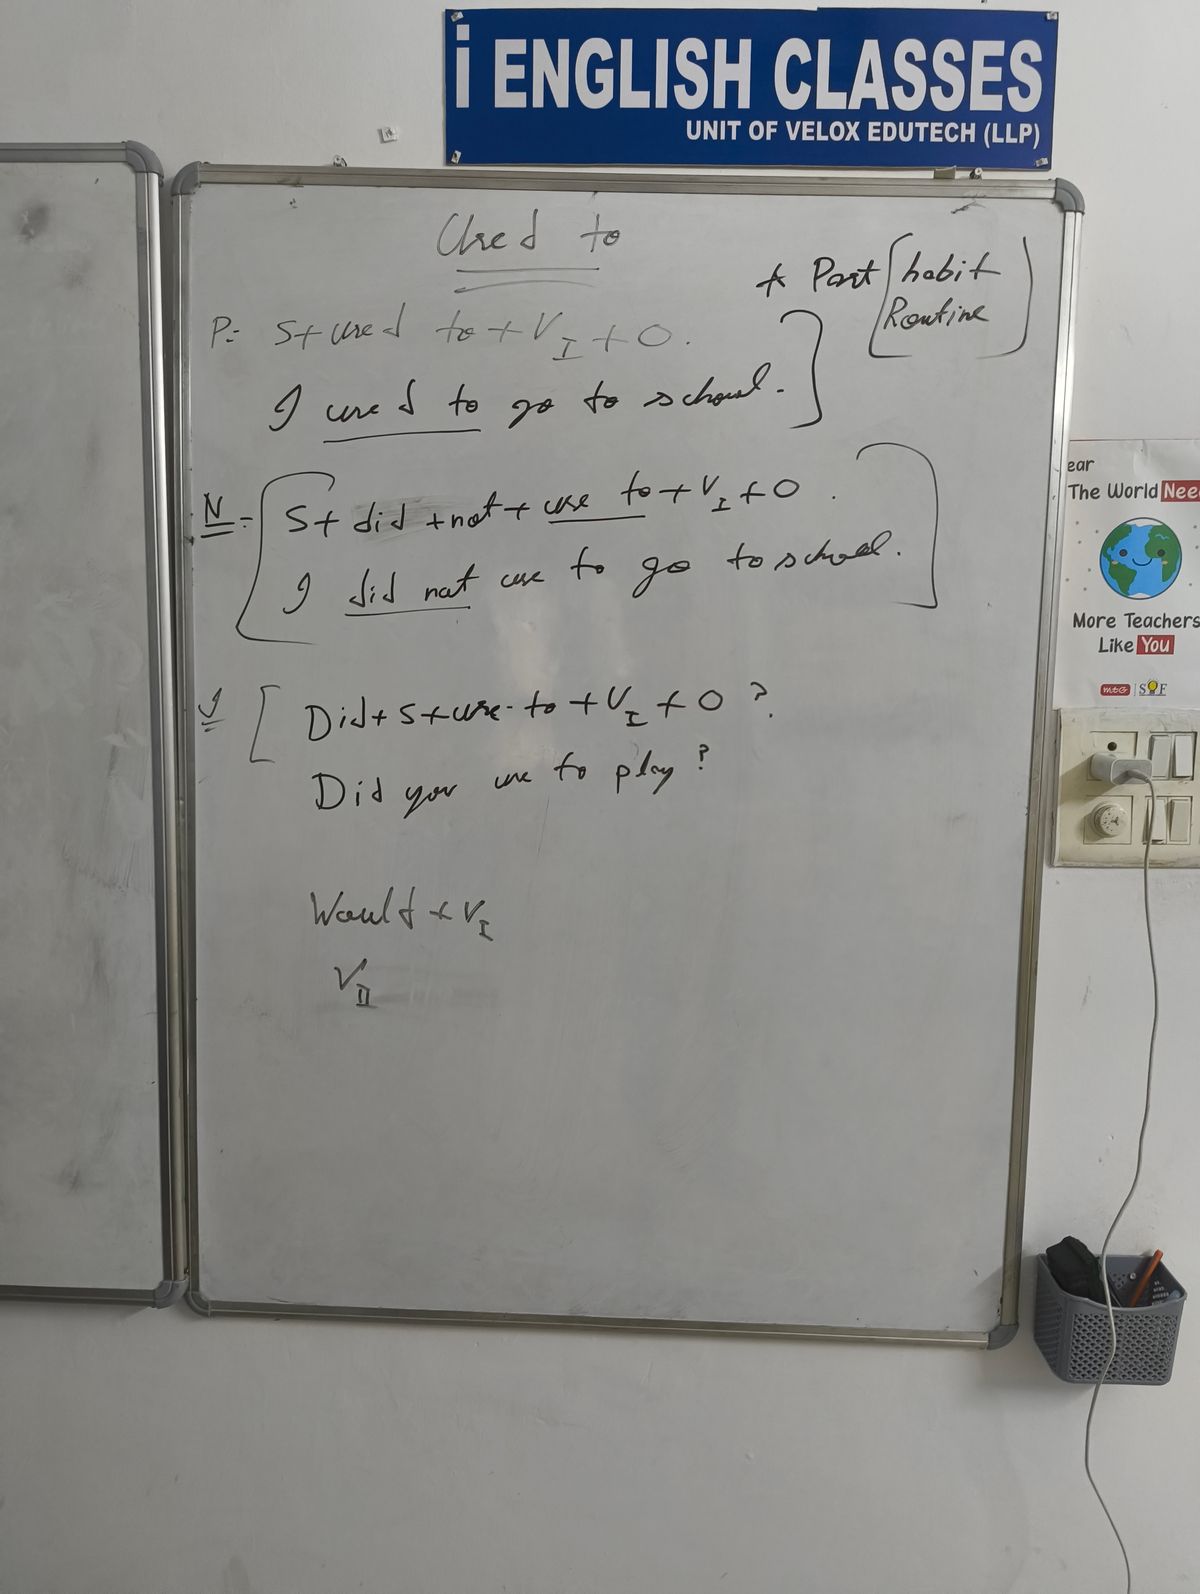 i ENGLISH CLASSES
UNIT OF VELOX EDUTECH (LLP)
Used to
* Past habit
Routine
P= S+ used to + V I + O.
I used to go to school.
N= S+ did + not + use to + V I + O.
I did not use to go to school.
I Did + S + use to + V I + O ?
Did you use to play ?
Would + V I
V II
ear
The World Nee
More Teachers
Like You
MtG SOF